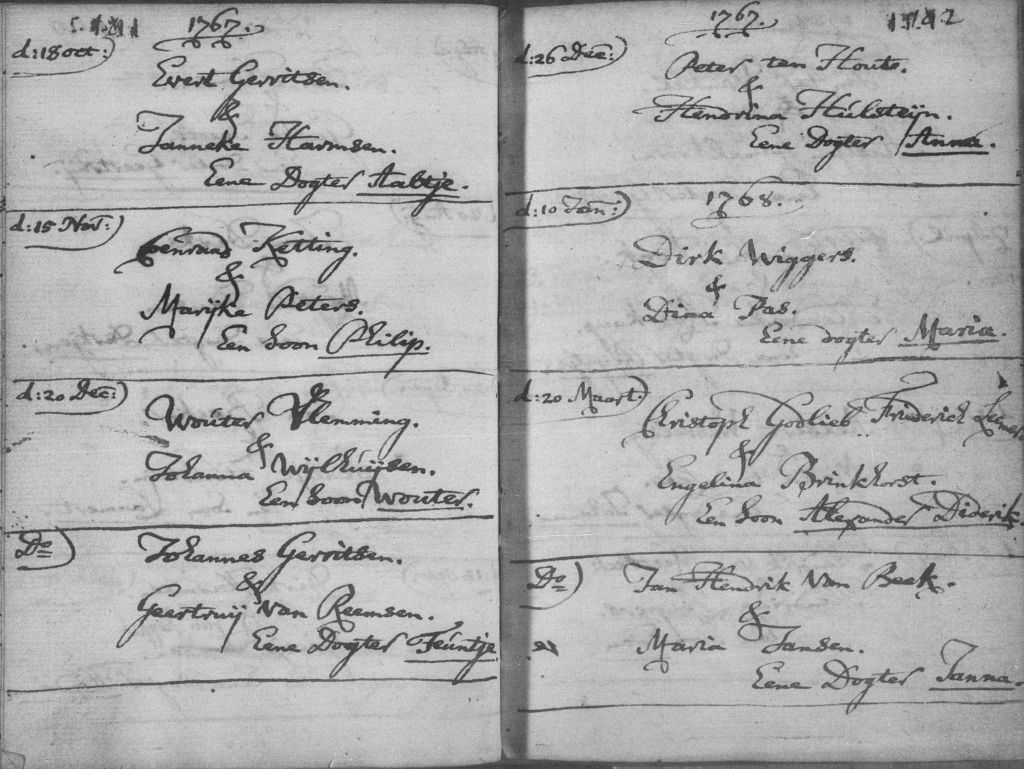 1767.
d: 18 oct:)
Evert Gerritsen.
&
Janneke Harmsen.
Eene Dogter Aaltje.
d: 15 Nov:)
Coenraad Ketting.
&
Marijke Peters.
Een Soon Philip.
d: 20 Dec:)
Wouter Vlemming.
&
Johanna Wijlhuijsen.
Een Soon Wouter.
Do)
Johannes Gerritsen.
&
Geertruij van Reemsen.
Eene Dogter Teuntje
1767.
d: 26 Dec:)
Peter ten Houte.
&
Hendrina Hulsteijn.
Eene Dogter Anna.
1768.
d: 10 Jan:)
Dirk Wiggers.
&
Dina Pas.
Eene dogter Maria.
d: 20 Maart.)
Christoph Godlieb Friederich
&
Engelina Brinkhorst.
Een Soon Alexander Diderik
Do)
Jan Hendrik van Beek.
&
Maria Jansen.
Eene Dogter Janna.